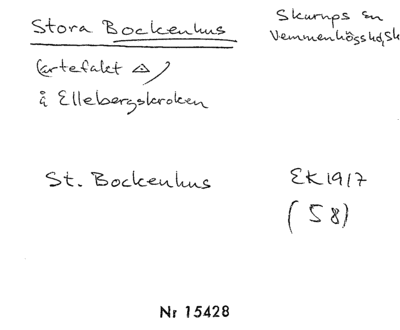 Stora Bockenhus
Skurups sn
Vemmenhögs hd, Sk
(artefakt △)
å Ellebergskroken
St. Bockenhus
EK 1917
(58)
Nr 15428